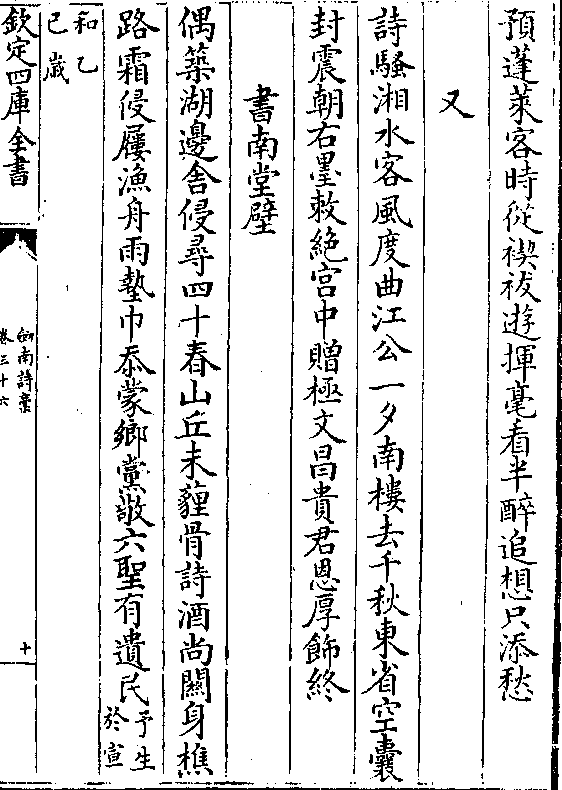 預蓬萊客時從禊祓遊揮毫看半醉追想只添愁
又
詩騷湘水客風度曲江公一夕南樓去千秋東省空囊
封震朝右墨敕絶宫中贈極文昌貴君恩厚飾終
書南堂壁
偶築湖邊舍侵尋四十春山丘未薶骨詩酒尚關身樵
路霜侵屨漁舟雨墊巾忝蒙鄉黨敬六聖有遺民予生
於宣
和乙
巳歲
欽定四庫全書
劒南詩藁
卷三十六
十